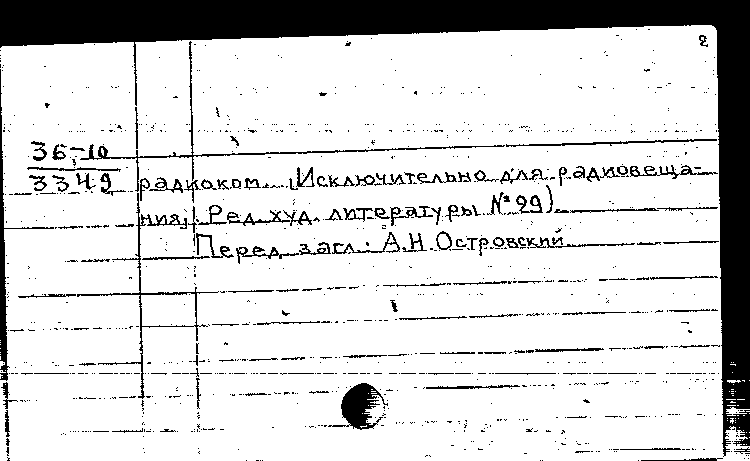 2
36-10
3349
радиоком. (Исключительно для радиовеща-
ния, Ред. худ. литературы № 29).
Перед загл.: А.Н. Островский